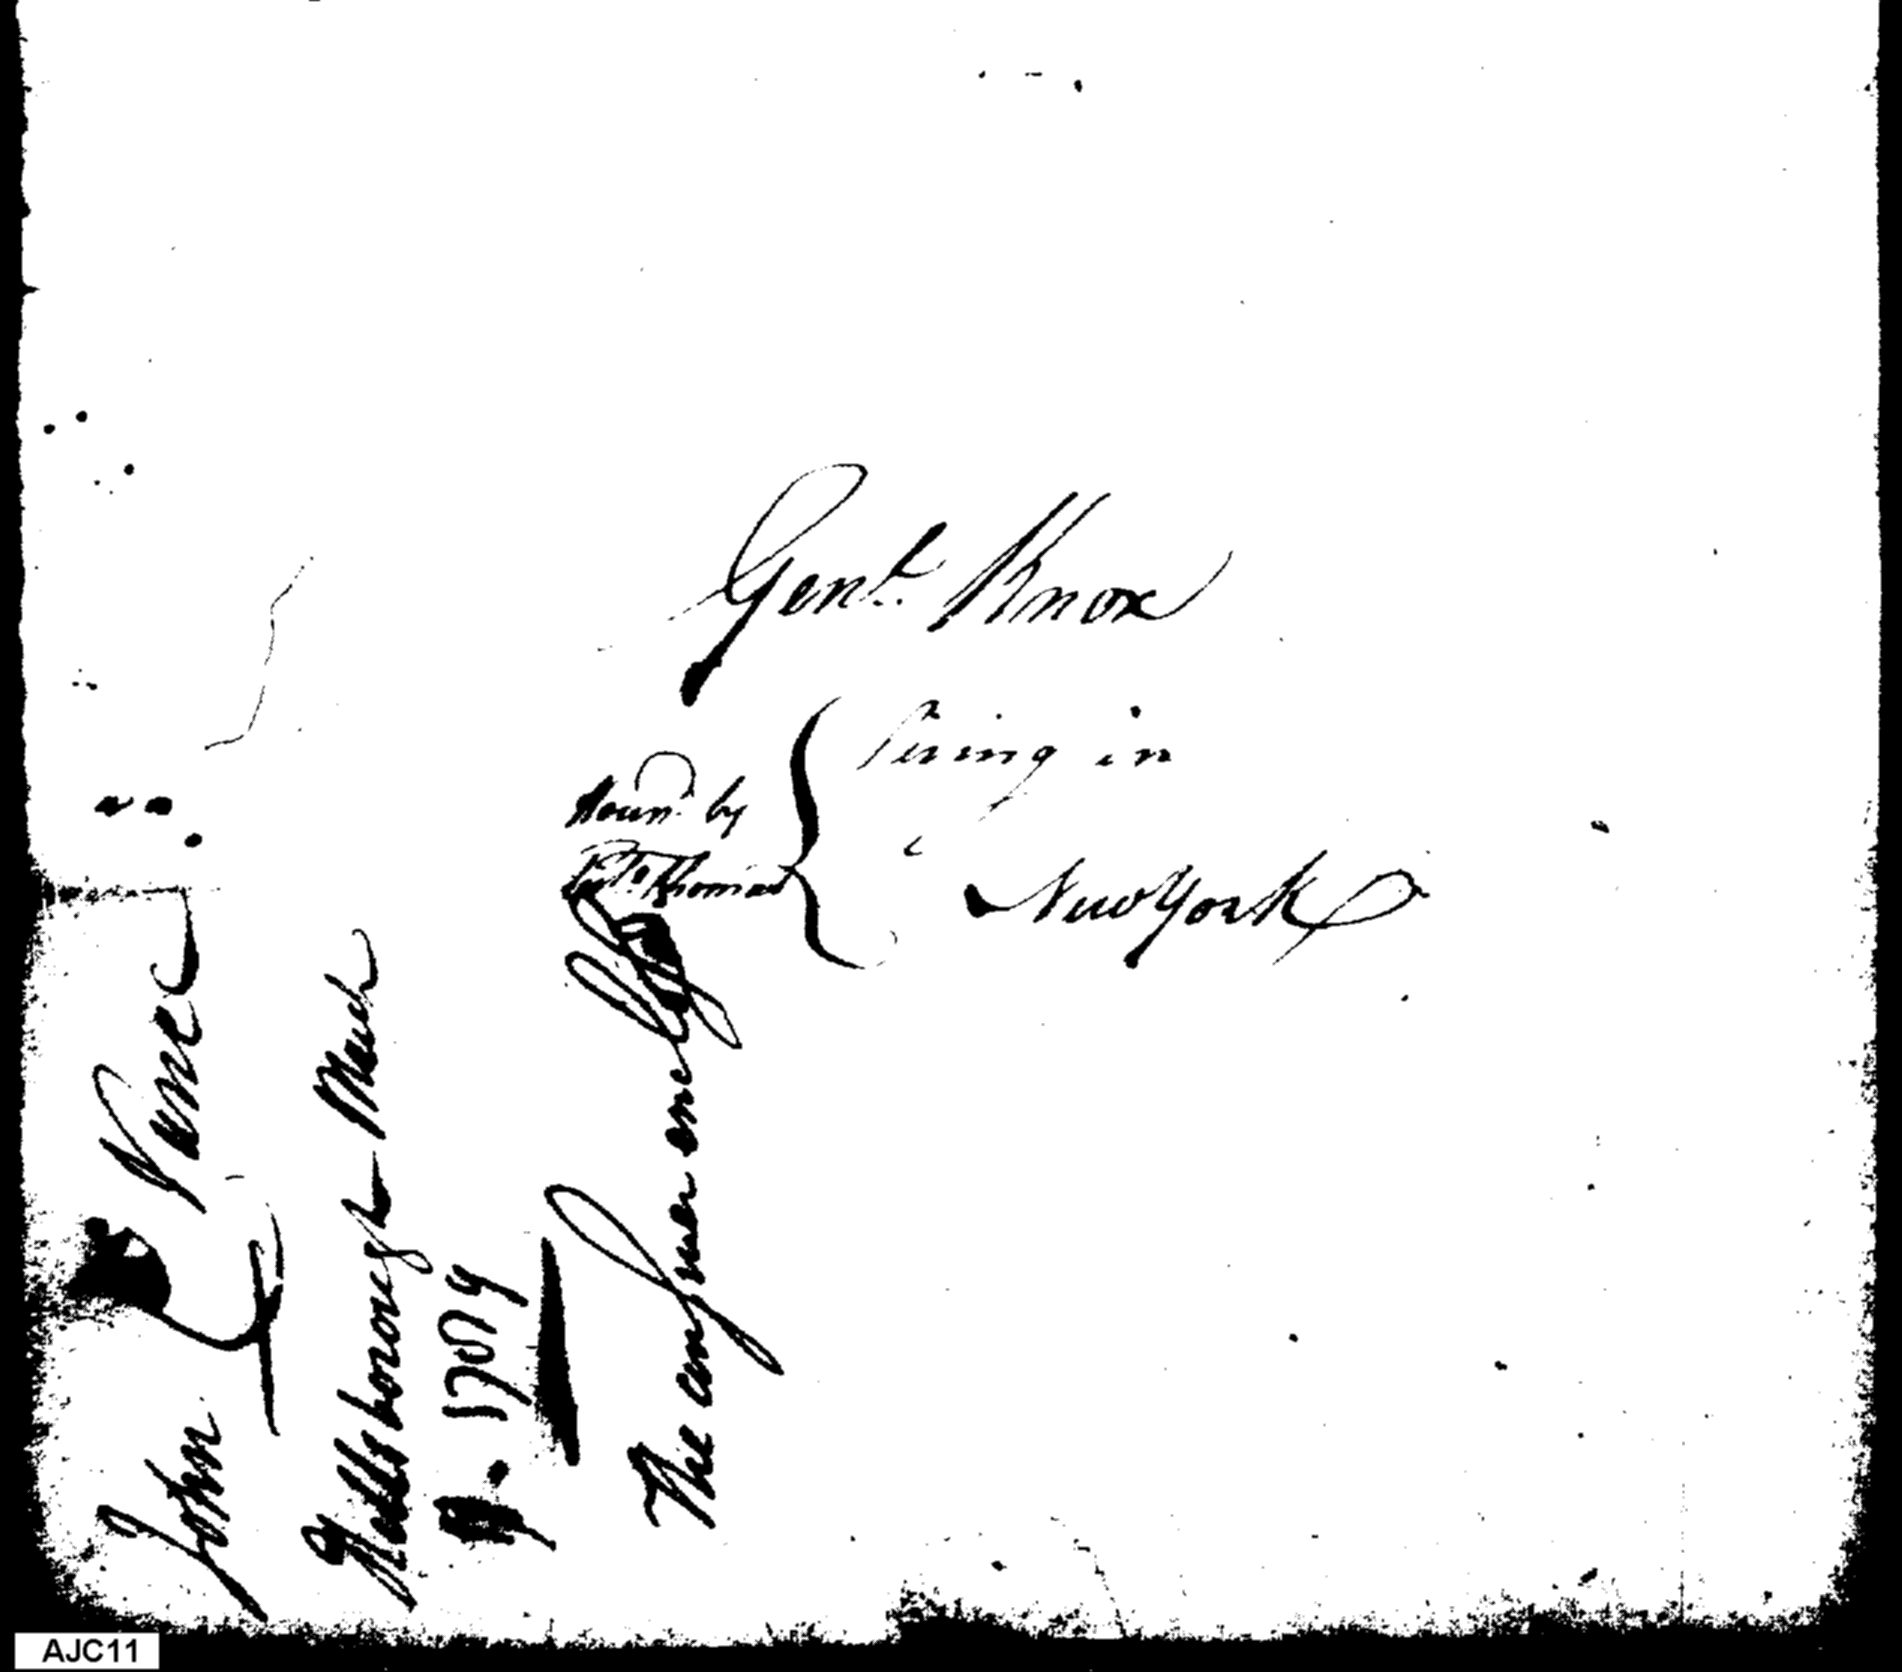 Genl. Knox
living in
New York
by
Thomas
John Nune
Hallsborough March
9. 1789
The answer enclos
AJC11